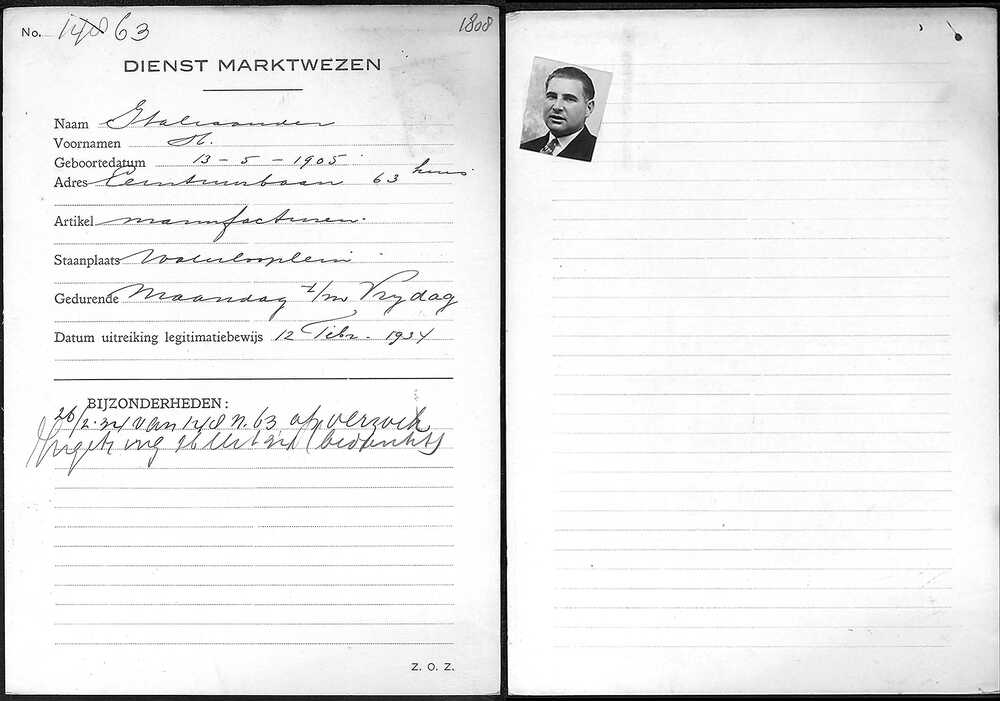 No. 148 63
1808
DIENST MARKTWEZEN
Naam Italiaander
Voornamen M.
Geboortedatum 13 - 5 - 1905
Adres Ceintuurbaan 63 huis
Artikel manufacturen
Staanplaats Waterlooplein
Gedurende Maandag t/m Vrijdag
Datum uitreiking legitimatiebewijs 12 Febr. 1934
BIJZONDERHEDEN:
26/2.34 van 148 n. 63 op verzoek
Z. O. Z.